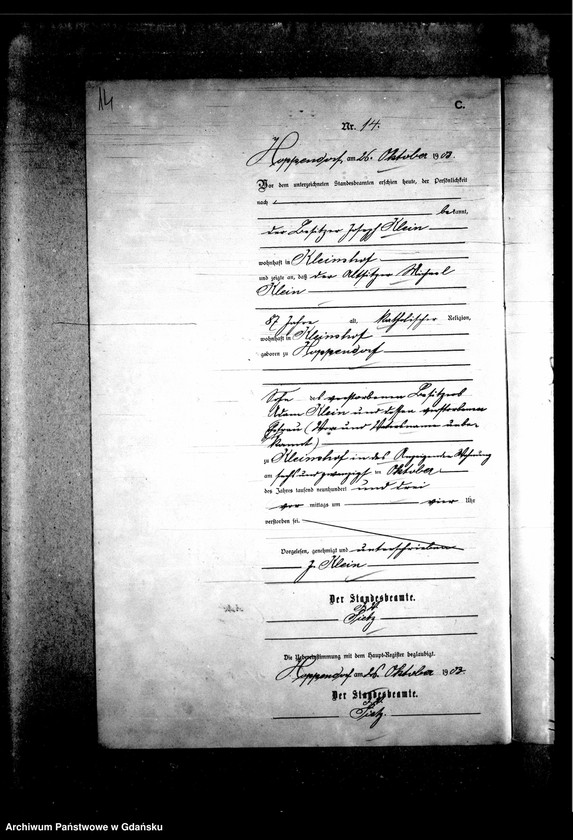 14
C.
Nr. 14.
Hoppendorf am 26. Oktober 1903.
Vor dem unterzeichneten Standesbeamten erschien heute, der Persönlichkeit
nach
bekannt,
der Besitzer Joseph Klein
wohnhaft in Kleinshof
und zeigte an, daß der Altsitzer Michael
Klein
87 Jahre alt, katholischer Religion,
wohnhaft in Kleinshof
geboren zu Hoppendorf
Sohn des verstorbenen Besitzers
Adam Klein und dessen verstorbenen
Ehefrau (Vor und Vatersname unbe-
kannt)
zu Kleinshof in des Anzeigenden Wohnung
am sechsundzwanzigsten Oktober
des Jahres tausend neunhundert und drei
vor mittags um vier Uhr
verstorben sei.
Vorgelesen, genehmigt und unterschrieben
J. Klein
Der Standesbeamte.
Tietz
Die Uebereinstimmung mit dem Haupt-Register beglaubigt.
Hoppendorf am 26. Oktober 1903.
Der Standesbeamte.
Tietz.
Archiwum Państwowe w Gdańsku